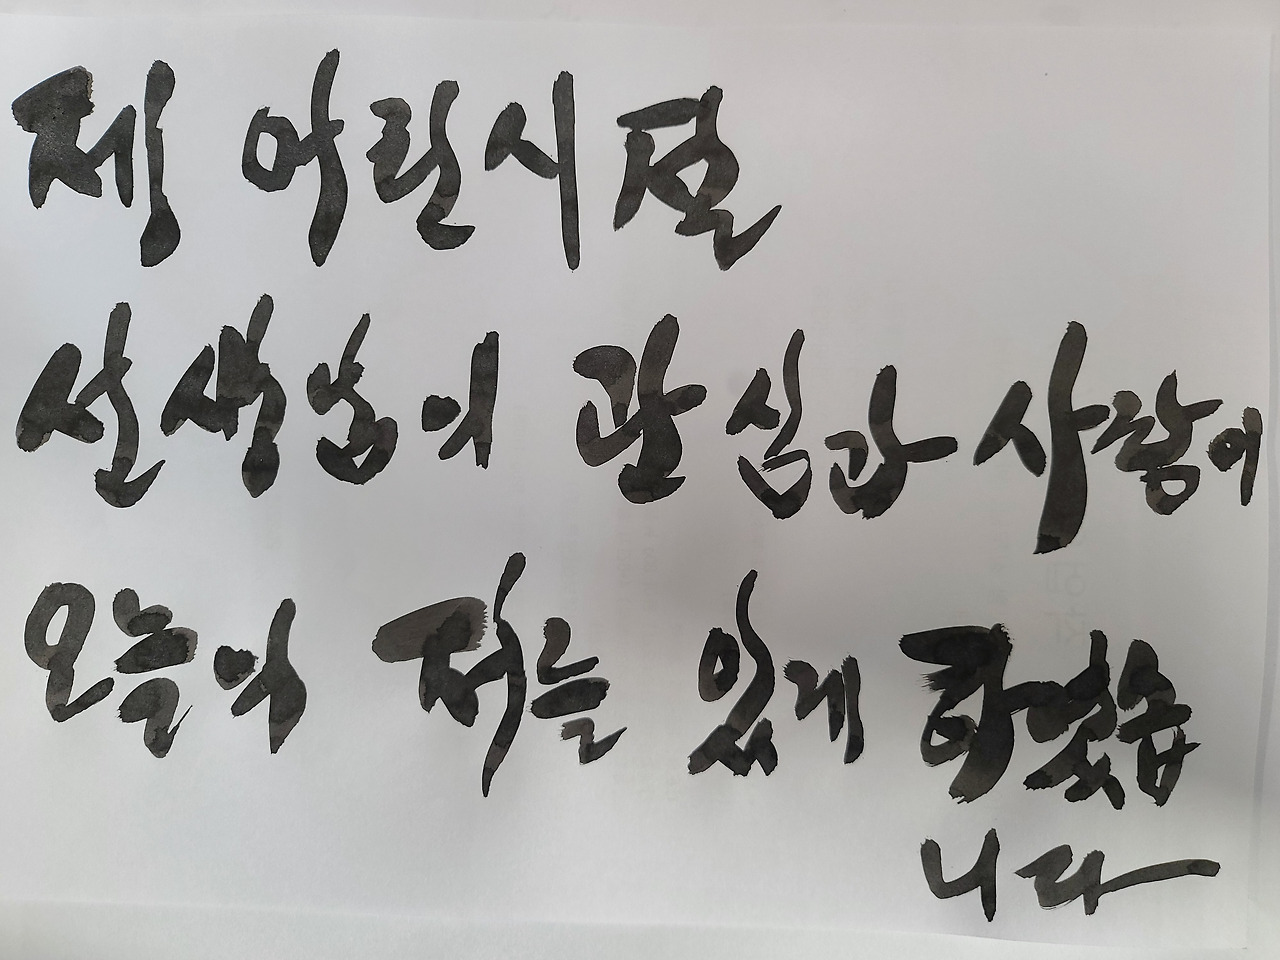 제 어린시절
선생님의 관심과 사랑이
오늘의 저를 있게 하였습
니다